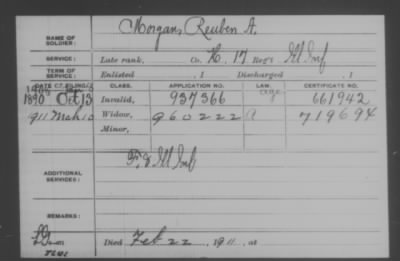 NAME OF SOLDIER: Morgan, Reuben A.
SERVICE: Late rank, Co. H, 17 Reg't Ill Inf
TERM OF SERVICE: Enlisted , 1 Discharged , 1
DATE OF FILING. CLASS. APPLICATION NO. LAW. CERTIFICATE NO.
1890 Oct 13 Invalid, 937366 661942
911 Mch 10 Widow, 960222 a 719694
Minor,
ADDITIONAL SERVICES: F, 8 Ill Inf
REMARKS:
Died Feb 22, 1911, at